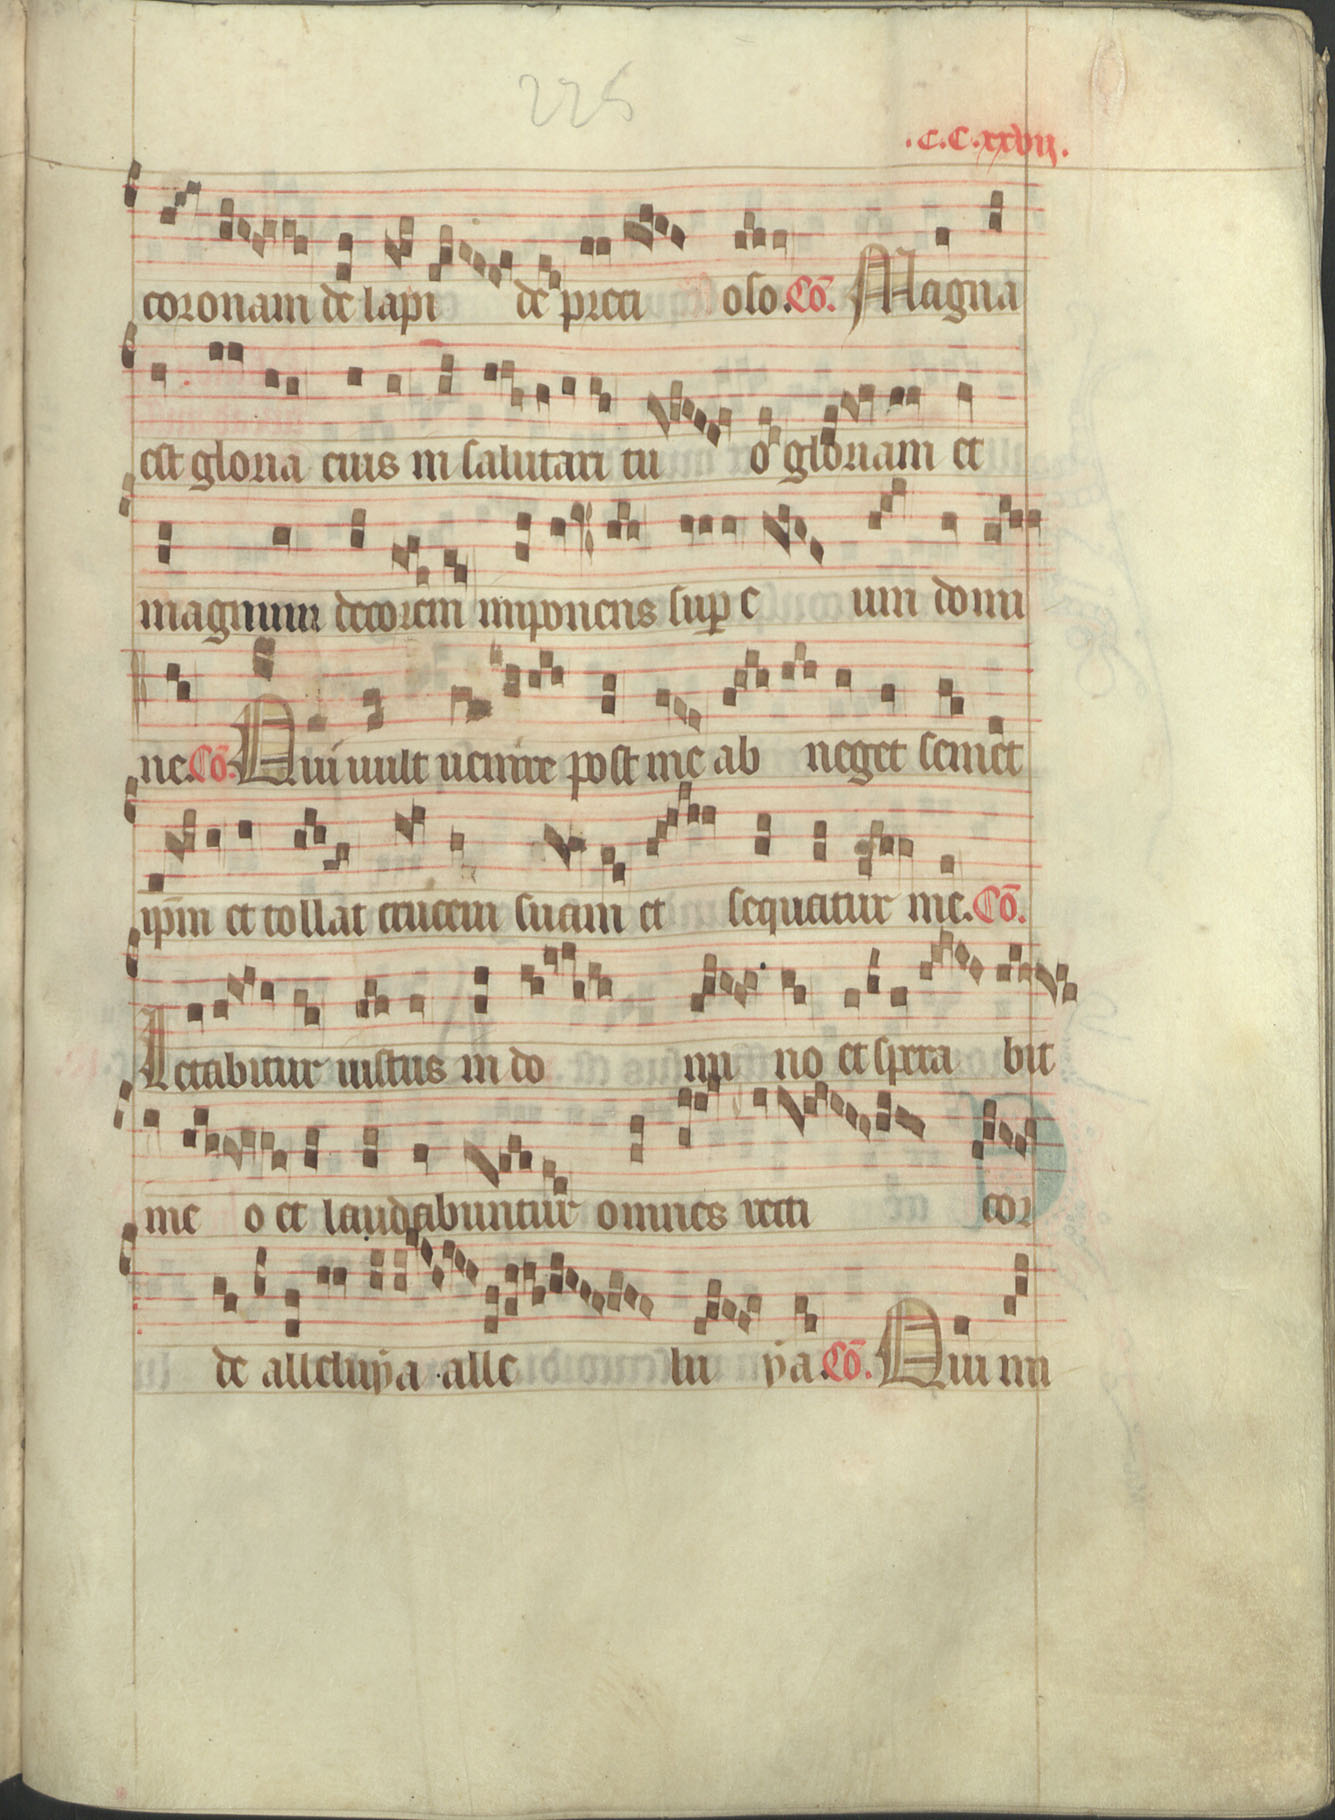 226
.c.c.xxvij.
coronam de lapi de preci oso. Cō. Magna
est gloria eius in salutari tu o gloriam et
magnum decorem inponens sup e um domi
ne. Cō. Qui uult uenire post me ab neget semet
ip̄m et tollat crucem suam et sequatur me. Cō.
Letabitur iustus in do mi no et spera bit
me o et laudabuntur omnes recti cor
de alleluya alle lu ya. Cō. Qui mi